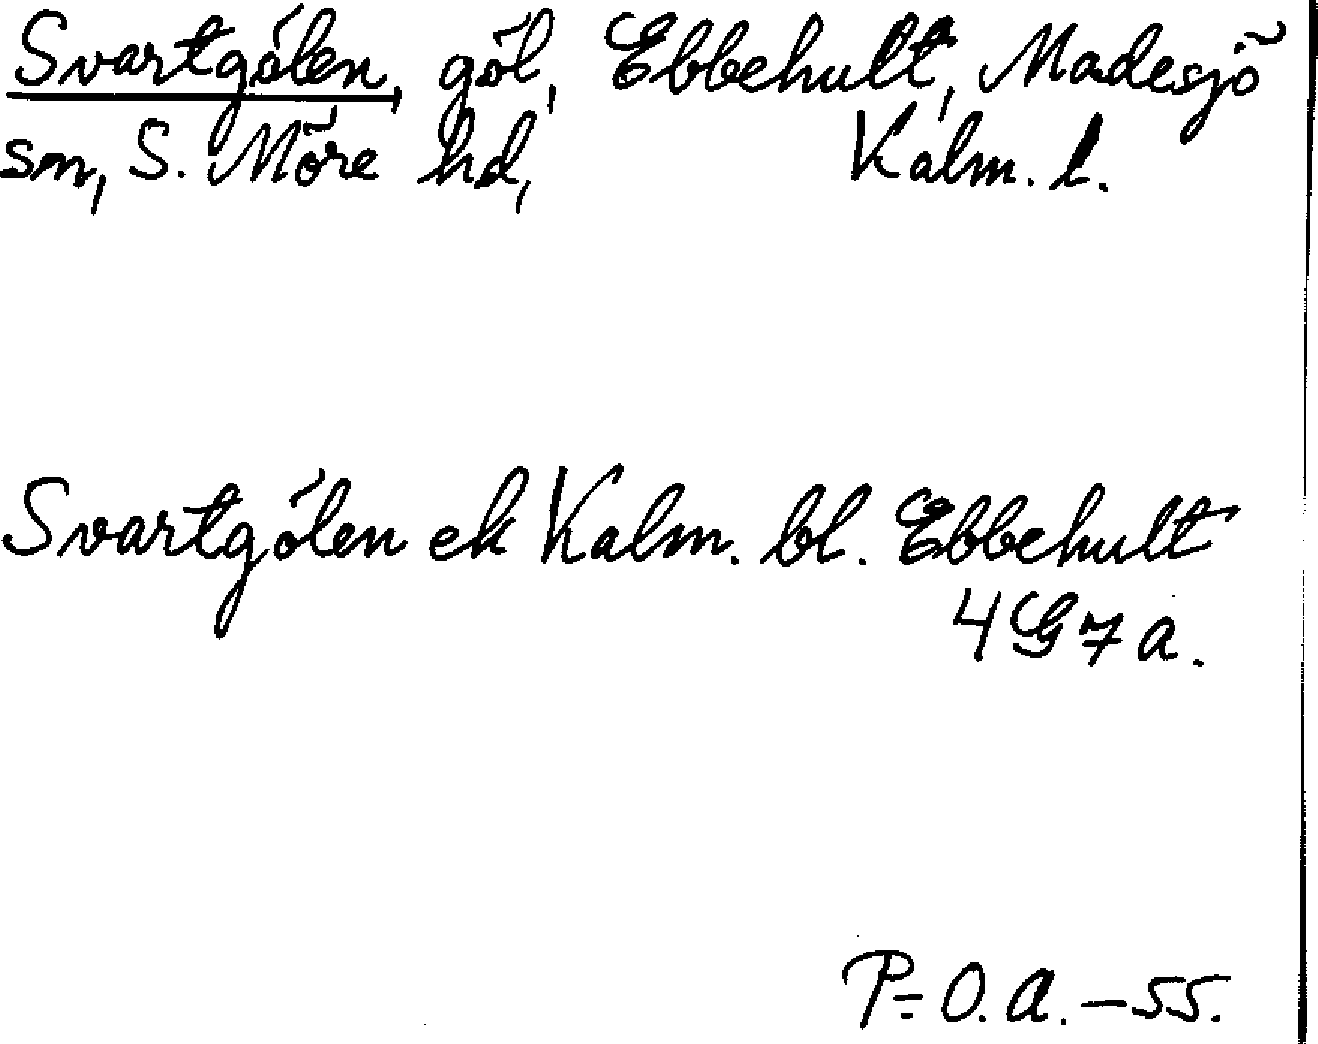 Svartgölen, göl, Ebbehult, Madesjö
sn, S. Möre hd, Kalm. l.
Svartgölen ek Kalm. bl. Ebbehult
4G7a.
P-O. A. -55.